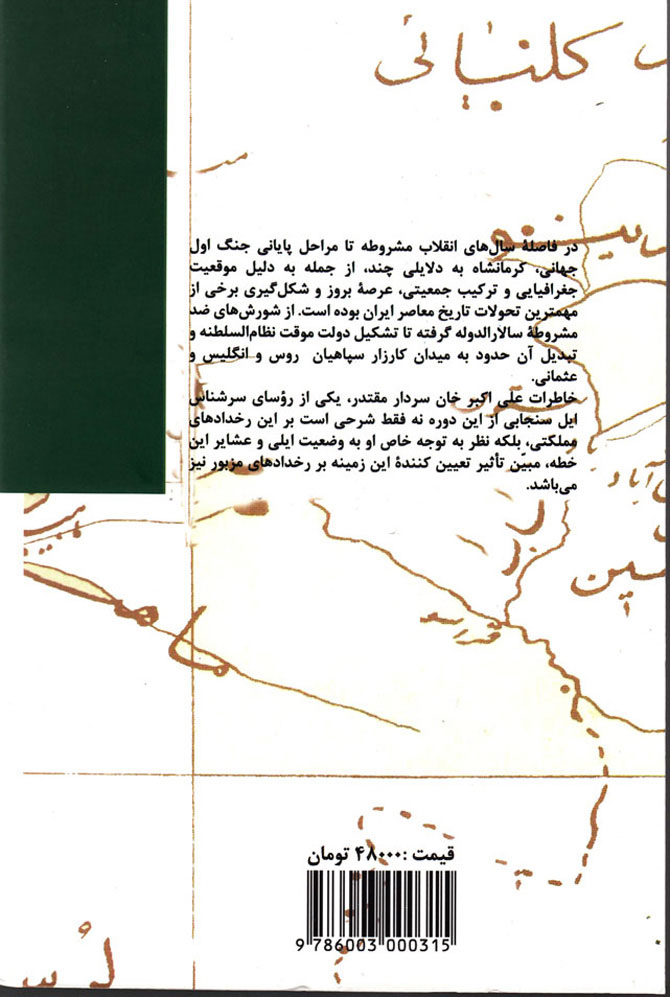 کلنبائی
در فاصلهٔ سال‌های انقلاب مشروطه تا مراحل پایانی جنگ اول
جهانی، کرمانشاه به دلایلی چند، از جمله به دلیل موقعیت
جغرافیایی و ترکیب جمعیتی، عرصهٔ بروز و شکل‌گیری برخی از
مهمترین تحولات تاریخ معاصر ایران بوده است. از شورش‌های ضد
مشروطهٔ سالارالدوله گرفته تا تشکیل دولت موقت نظام‌السلطنه و
تبدیل آن حدود به میدان کارزار سپاهیان روس و انگلیس و
عثمانی.
خاطرات علی اکبر خان سردار مقتدر، یکی از رؤسای سرشناس
ایل سنجابی از این دوره نه فقط شرحی است بر این رخدادهای
مملکتی، بلکه نظر به توجه خاص او به وضعیت ایلی و عشایر این
خطه، مبیّن تأثیر تعیین کنندهٔ این زمینه بر رخدادهای مزبور نیز
می‌باشد.
قیمت :۴۸۰۰۰ تومان
9 786003 000315